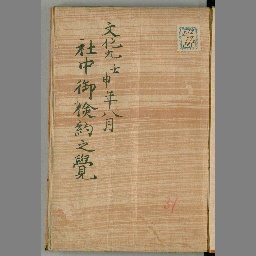 文化九壬申年八月
社中御儉約之覺